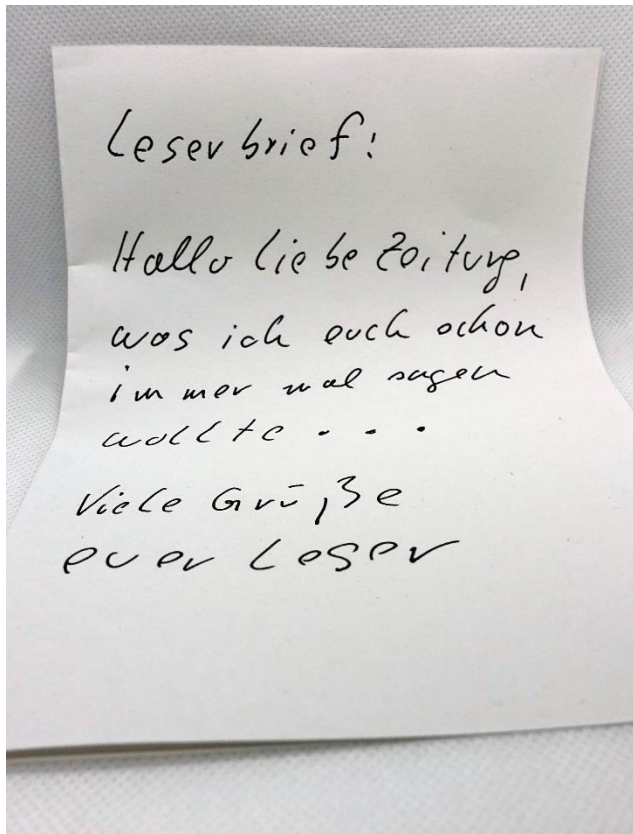 Leserbrief!
Hallo liebe Zeitung,
was ich euch schon
immer mal sagen
wollte...
Viele Grüße
euer Leser